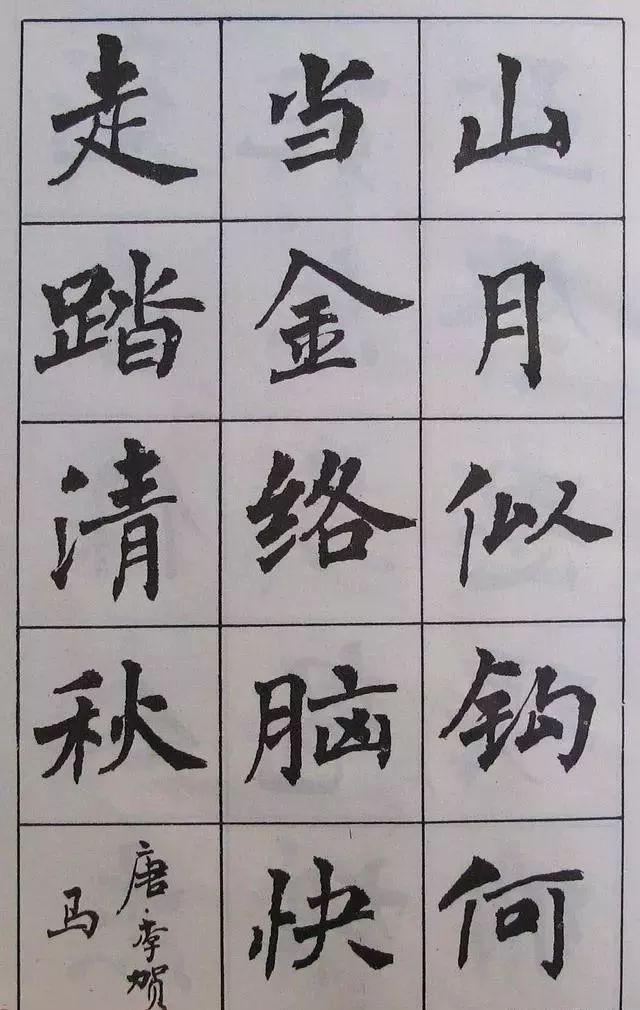 山月似钩何
当金络脑快
走踏清秋
唐李贺
马